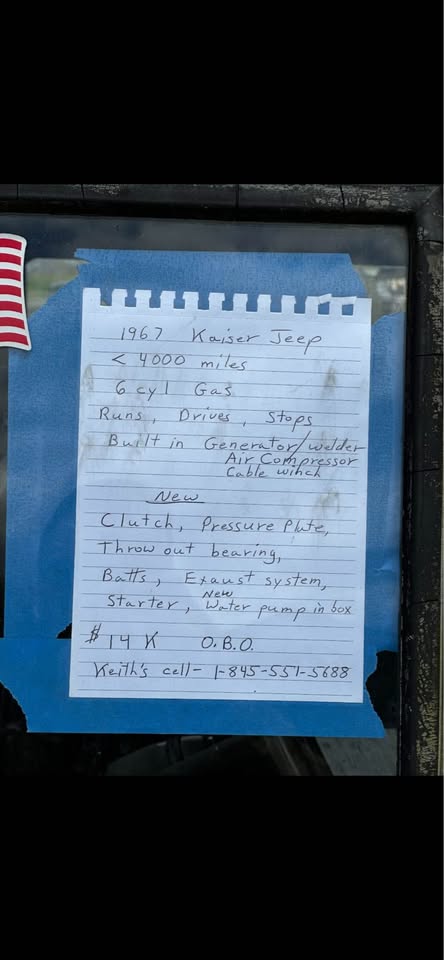 1967 Kaiser Jeep
< 4000 miles
6 cyl Gas
Runs, Drives, Stops
Built in Generator/welder
Air Compressor
Cable winch
New
Clutch, Pressure Plate,
Throw out bearing,
Batts, Exaust system,
New
Starter, Water pump in box
$14K O.B.O.
Keith's cell- 1-845-551-5688